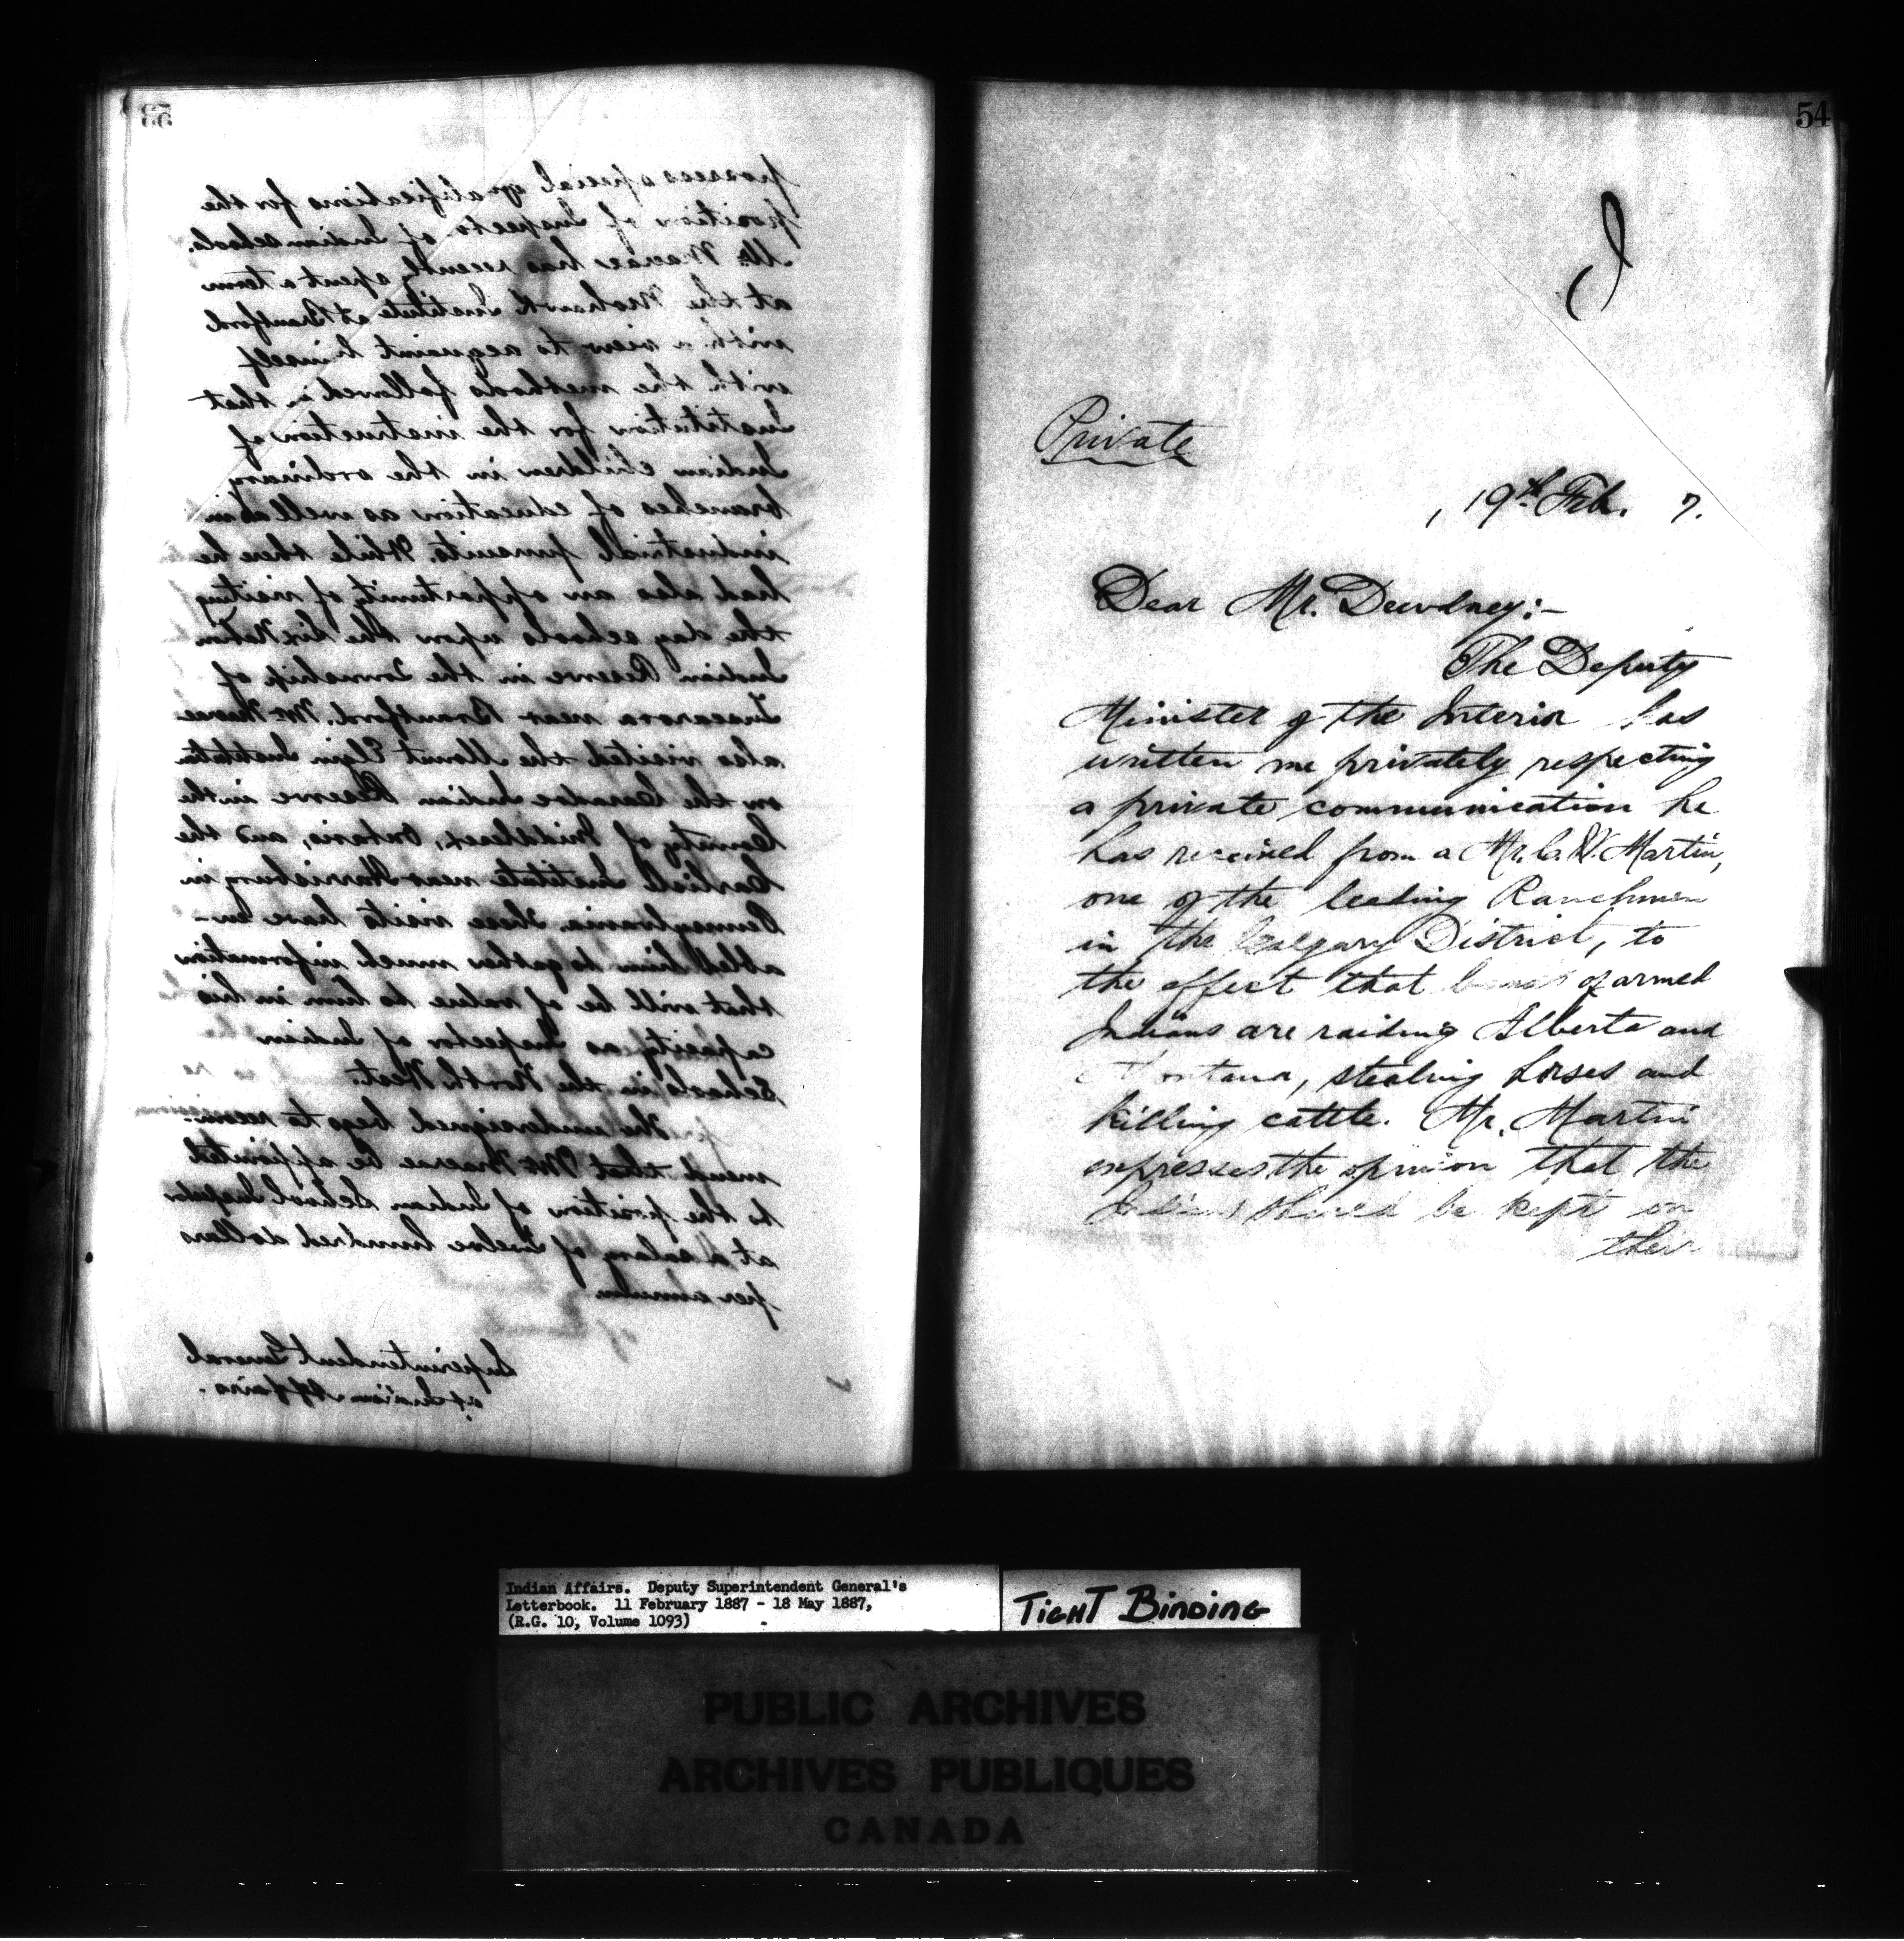 53
possess special qualifications for the
position of Inspector of Indian schools.
Mr. Macrae has recently spent a term
at the Mohawk Institute at Brantford
with a view to acquaint himself
with the methods followed in that
Institution for the instruction of
Indian children in the ordinary
branches of education as well as in
industrial pursuits. While there he
had also an opportunity of visiting
the day schools upon the Six Nation
Indian Reserve in the Township of
Tuscarora near Brantford. Mr. Macrae
also visited the Mount Elgin Institute
on the Caradoc Indian Reserve in the
County of Middlesex, Ontario, and the
Carlisle Institute near Harrisburg in
Pennsylvania. These visits have en-
abled him to gather much information
that will be of value to him in his
capacity as Inspector of Indian
Schools in the North West.
The undersigned begs to recom-
mend that Mr. Macrae be appointed
to the position of Indian School Inspector
at a salary of Twelve hundred dollars
per annum.
Superintendent General
of Indian Affairs.
54
Private
, 19th Feb. 7.
Dear Mr. Dewdney:-
The Deputy
Minister of the Interior has
written me privately respecting
a private communication he
has received from a Mr. C. W. Martin,
one of the leading Ranchmen
in the Calgary District, to
the effect that bands of armed
Indians are raiding Alberta and
Montana, stealing horses and
killing cattle. Mr. Martin
expresses the opinion that the
Indians should be kept on
their
Indian Affairs. Deputy Superintendent General's
Letterbook. 11 February 1887 - 18 May 1887,
(R.G. 10, Volume 1093)
TIGHT BINDING
PUBLIC ARCHIVES
ARCHIVES PUBLIQUES
CANADA